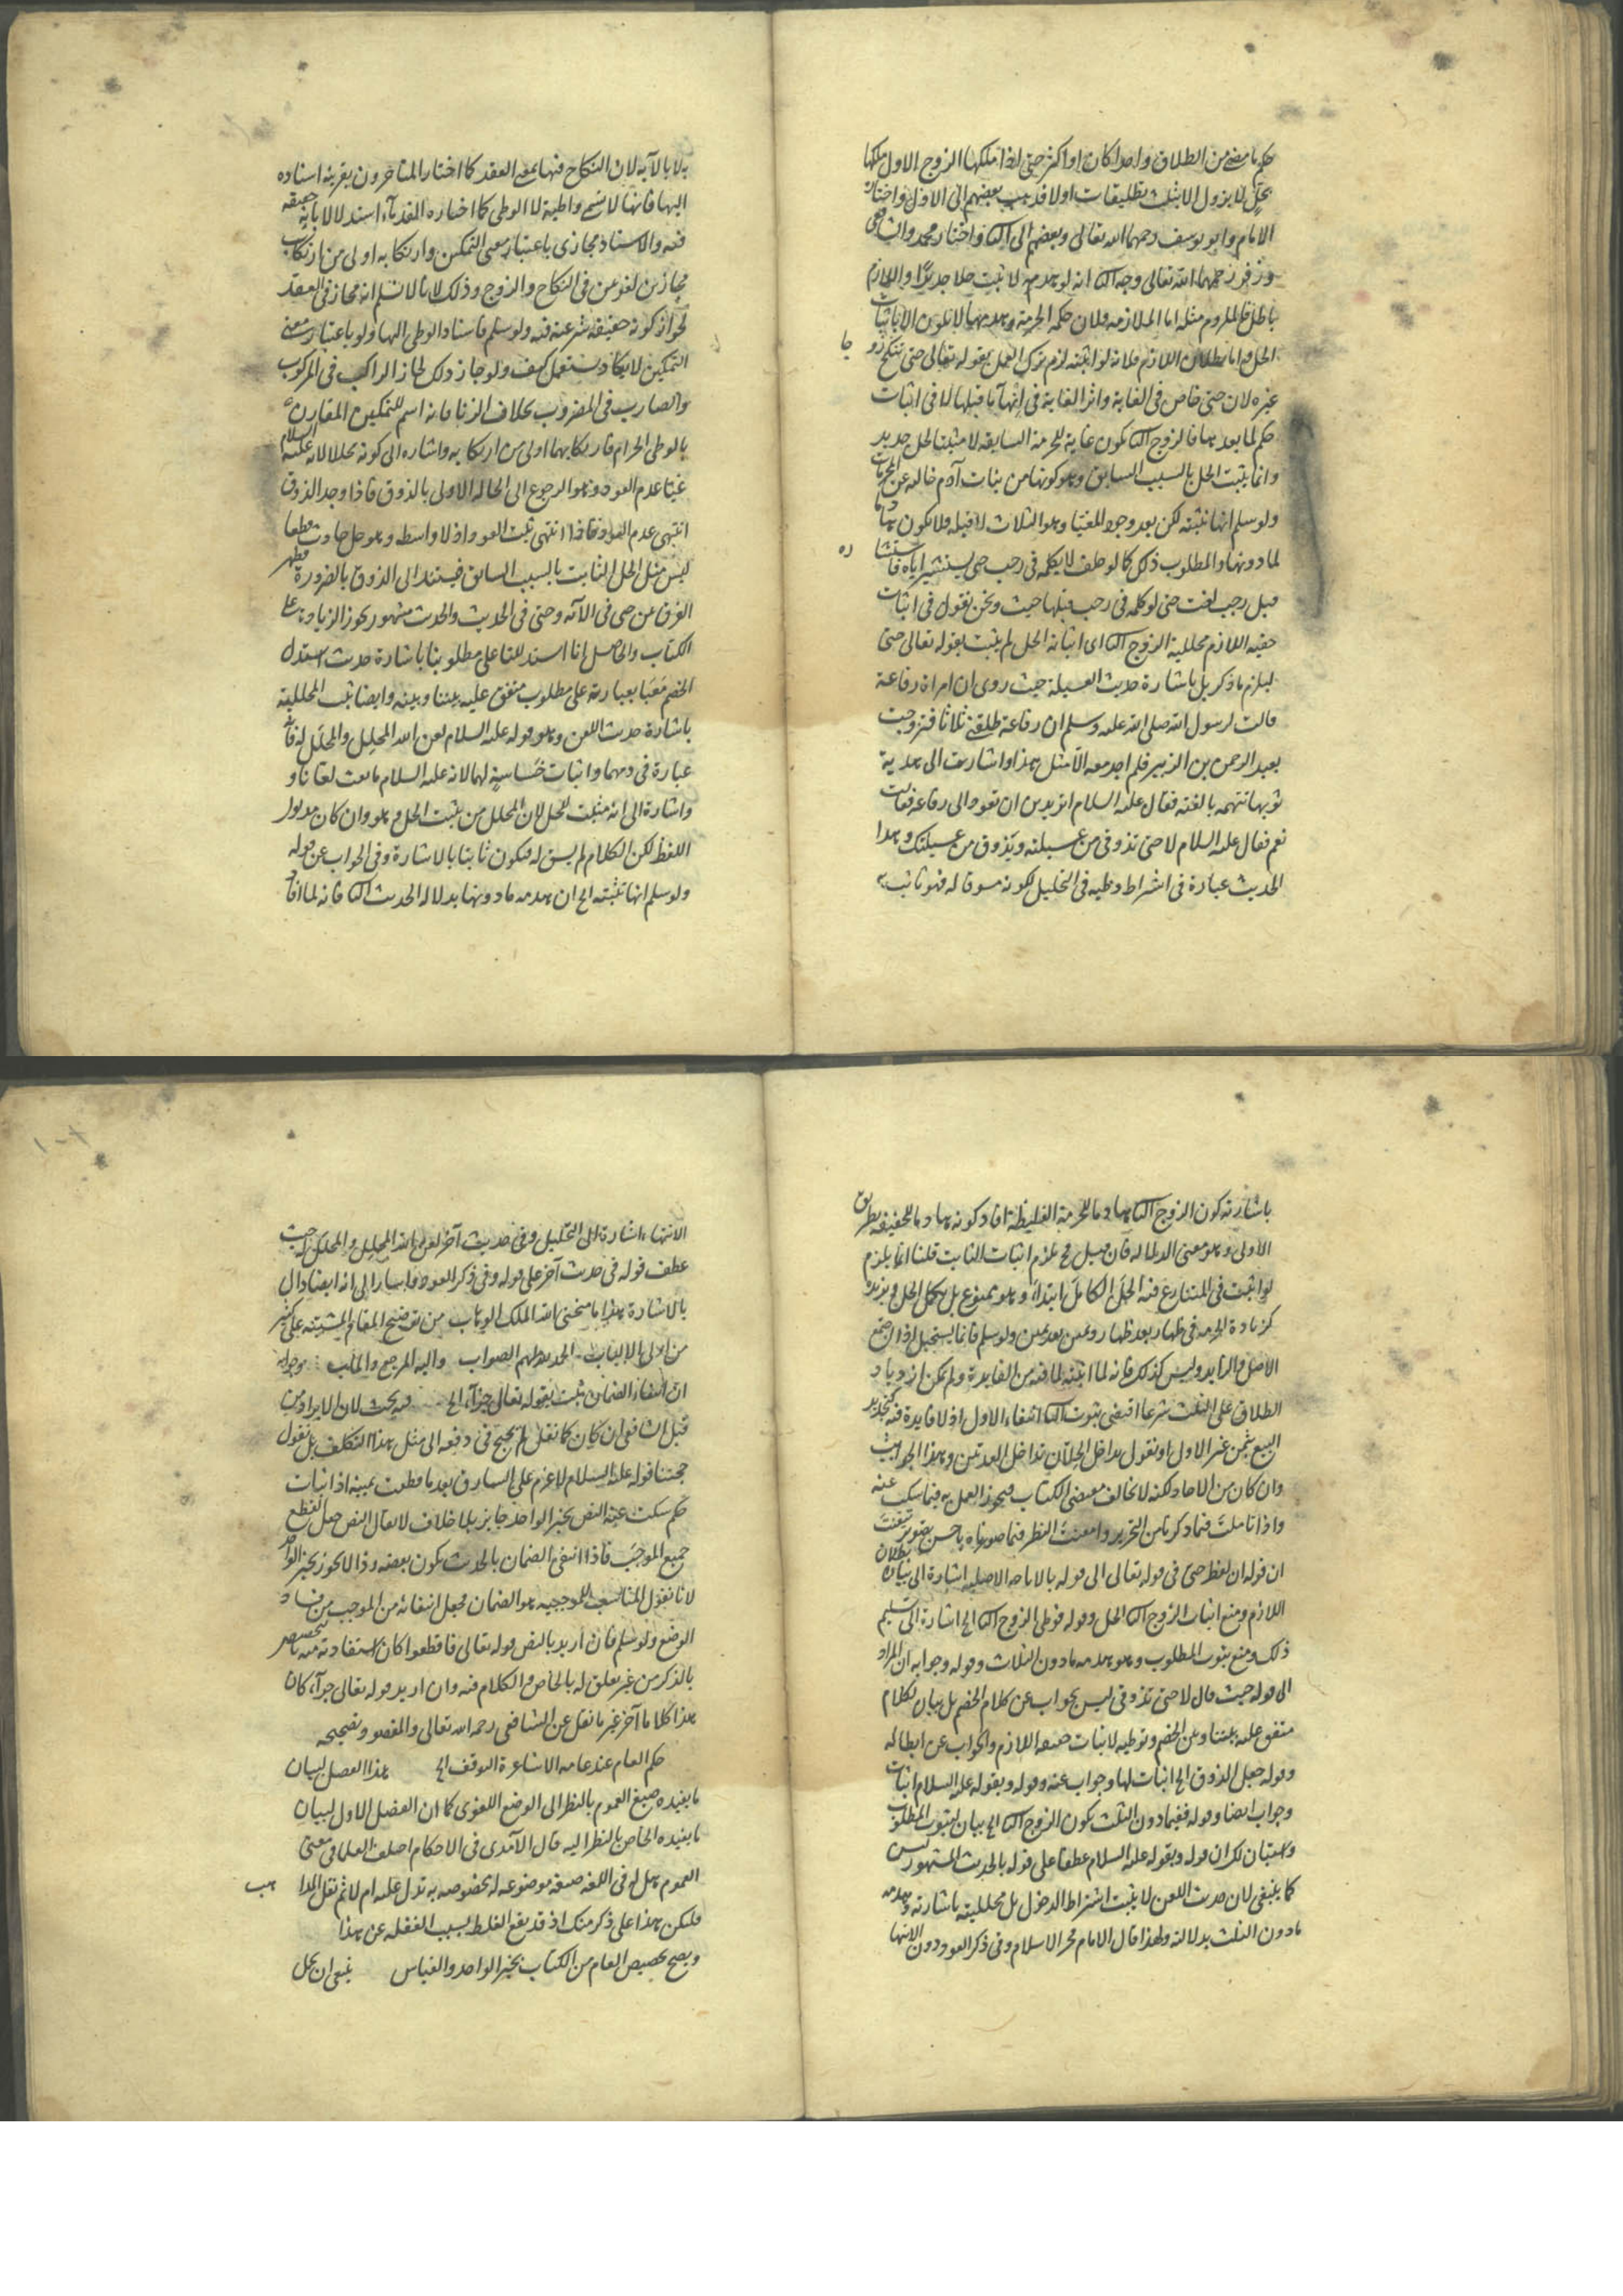 حكم ما مضى من الطلاق واحدا كان او اكثر حتى اذا ملكها الزوج الاول ملكها
بحل لا يزول الا بثلث تطليقات اولا فذهب بعضهم الى الاول واختاره
الامام وابو يوسف رحمهما الله تعالى وبعضهم الى الثا واختار محمد والشافعي
وزفر رحمهما الله تعالى وجه الثا انه لو هدمه لاثبت حلا جديدا واللازم
باطل فالملزوم مثله اما الملازمة فلان حكمه الحرمة وهدمها لا يكون الا باثبات
الحل واما بطلان اللازم فلانه لو اثبته لزم ترك العمل بقوله تعالى حتى تنكح زوجا
غيره لان حتى خاص في الغاية واثر الغاية في انتهاء ما قبلها لا في اثبات
حكم لما بعدها فالزوج الثا يكون غاية للحرمة السابقة لا مثبتا لحل جديد
وانما يثبت الحل بالسبب السابق وهو كونها من بنات آدم خالية عن المحرمات
ولو سلم انها تثبته لكن بعد وجود المغيا وهو الثلاث لا قبله فلا يكون هادما
لما دونها والمطلوب ذلك كما لو حلف لا يكلمه في رجب حتى يستشير اباه فاستشاره
قبل رجب لغت حتى لو كلمه في رجب قبلها حيث ونحن نقول في اثبات
حقية اللازم محللية الزوج الثا اى اثباته الحل لم يثبت بقوله تعالى حتى
ليلزم ما ذكر بل باشارة حديث العسيلة حيث روى ان امراة رفاعة
قالت لرسول الله صلى الله عليه وسلم ان رفاعة طلقني ثلاثا فتزوجت
بعبد الرحمن بن الزبير فلم اجد معه الا مثل هذا واشارت الى هدبة
ثوبها تتهمه بالعنة فقال عليه السلام اتريدين ان تعودى الى رفاعة فقالت
نعم فقال عليه السلام لا حتى تذوقى من عسيلته ويذوق من عسيلتك وهذا
الحديث عبارة في اشتراط وطيه في التحليل لكونه مسوقا له فهو ثابت
به لا بالآية لان النكاح فيها بمعنى العقد كما اختار المتاخرون بقرينة اسناده
اليها فانها لا تسمى واطية لا الوطى كما اختاره القدماء استدلالا بانه حقيقة
فيه والاسناد مجازى باعتبار معنى التمكين وارتكابه اولى من ارتكاب
مجازين لغويين في النكاح والزوج وذلك لانا لا نسلم انه مجاز في العقد
لجواز كونه حقيقة شرعية فيه ولو سلم فاسناد الوطى اليها ولو باعتبار معنى
التمكين لا يكاد يستعمل كيف ولو جاز ذلك لجاز الراكب في المركوب
والضارب في المضروب بخلاف الزنا فانه اسم للتمكين المقارن
بالوطى الحرام فارتكابهما اولى من ارتكابه واشارة الى كونه محللا لانه عليه السلام
غيا عدم العود وهو الرجوع الى الحالة الاولى بالذوق فاذا وجد الذوق
انتهى عدم العود فاذا انتهى ثبت العود اذ لا واسطة وهو حل حادث قطعا
ليس مثل الحل الثابت بالسبب السابق فيستند الى الذوق بالضرورة فظهر
الفرق بين حتى في الآية وحتى في الحديث والحديث مشهور يجوز الزيادة به على
الكتاب والحاصل انا استدللنا على مطلوبنا باشارة حديث استدل
الخصم معنا بعبارته على مطلوب متفق عليه بيننا وبينه وايضا يثبت المحللية
باشارة حديث اللعن وهو قوله عليه السلام لعن الله المحلل والمحلل له فانه
عبارة في ذمهما واثبات خساسة لهما لانه عليه السلام ما بعث لعانا و
واشارة الى انه مثبت للحل لان المحلل من يثبت الحل وهو وان كان مدلول
اللفظ لكن الكلام لم يسق له فيكون ثابتا بالاشارة وفي الجواب عن قوله
ولو سلم انها تثبته الخ ان هدمه ما دونها بدلالة الحديث الثا فانه لما افاد
باشارته كون الزوج الثا هادما للحرمة الغليظة افاد كونه هادما للخفيفة بطريق
الاولى وهو معنى الدلالة فان قيل فح يلزم اثبات الثابت قلنا انما يلزم
لو اثبت في المتنازع فيه الحل الكامل ابتداء وهو ممنوع بل يكمل الحل ويزيده
كزيادة الحرمة في ظهار بعد ظهار ويمين بعد يمين ولو سلم فانما يستحيل اذا اجتمع
الاصل والزايد وليس كذلك فانه لما اثبته لما فيه من الفايدة ولم يمكن ازدياد
الطلاق على الثلث شرعا اقتضى ثبوت الثا انتفاء الاول اذ لا فايدة فيه كتجديد
البيع بثمن غير الاول او نقول بتداخل الحلان تداخل العدتين وهذا الحديث
وان كان من الاحاد لكنه لا يخالف مقتضى الكتاب فيجوز العمل به فيما سكت عنه
واذا تاملت فيما ذكرنا من التحرير وامعنت النظر فيما صورناه باحسن تصوير تيقنت
ان قوله ان لفظ حتى في قوله تعالى الى قوله بالاباحة الاصلية اشارة الى بيان بطلان
اللازم ومنع اثبات الزوج الثا الحل وقوله فوطى الزوج الثا الخ اشارة الى تسليم
ذلك ومنع ثبوت المطلوب وهو هدمه ما دون الثلاث وقوله وجوابه ان المراد
الى قوله حيث قال لا حتى تذوقى ليس بجواب عن كلام الخصم بل بيان لكلام
متفق عليه بيننا وبين الخصم وتوطية لاثبات حقية اللازم والجواب عن ابطاله
وقوله جعل الذوق الخ اثبات لها وجواب عنه وقوله وبقوله عليه السلام اثبات
وجواب ايضا وقوله ففيما دون الثلث يكون الزوج الثا الخ بيان لثبوت المطلوب
وستبان لك ان قوله وبقوله عليه السلام عطفا على قوله بالحديث المشهور ليس
كما ينبغى لان حديث اللعن لا يثبت اشتراط الدخول بل محلليته باشارته وهدمه
ما دون الثلث بدلالته ولهذا قال الامام فخر الاسلام وفي ذكر العود دون الانتهاء
الانتهاء اشارة الى التحليل وفي حديث آخر لعن الله المحلل والمحلل له حيث
عطف قوله في حديث آخر على قوله وفي ذكر العود واشار الى انه ايضا دال
بالاشارة هذا ما منحنى الله الملك الوهاب من توضيح المقام المشتبه على كثير
من اولى الالباب الحمد لملهم الصواب واليه المرجع والمآب وجوابه
ان انتفاء الضمان يثبت بقوله تعالى جزاء الخ فيه بحث لان الايراد من
قبل الشافعى ان كان كما نقل لم يحتج في دفعه الى مثل هذا التكلف بل نقول
حجتنا قوله عليه السلام لا غرم على السارق بعد ما قطعت يمينه اذ اثبات
حكم سكت عنه النص بخبر الواحد جايز بلا خلاف لا يقال النص جعل القطع
جميع الموجب فاذا انتفى الضمان بالحديث يكون بعضه وذا لا يجوز بخبر الواحد
لانا نقول المناسب للموجبية هو الضمان فجعل انتفائه من الموجب من فساد
الوضع ولو سلم فان اريد بالنص قوله تعالى فاقطعوا كان استفادته منه بالتخصيص
بالذكر من غير تعلق له بالخاص والكلام فيه وان اريد قوله تعالى جزاء كان
هذا كلاما آخر غير ما نقل عن الشافعي رحمه الله تعالى والمقصود تصحيحه
حكم العام عند عامة الاشاعرة التوقف الخ هذا الفصل لبيان
ما يفيده صيغ العموم بالنظر الى الوضع اللغوى كما ان الفصل الاول لبيان
ما يفيده الخاص بالنظر اليه قال الآمدى في الاحكام اختلف العلما في معنى
العموم هل له في اللغة صيغة موضوعة له بخصوصه به تدل عليه ام لا ثم نقل المذاهب
فليكن هذا على ذكر منك اذ قد يقع الغلط بسبب الغفلة عن هذا
ويصح تخصيص العام من الكتاب بخبر الواحد والقياس ينبغى ان يحمل